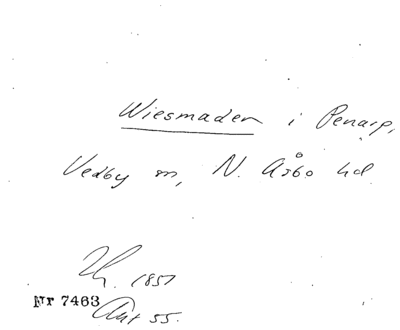 Wiesmaden i Penarp,
Vedby sn, N. Åsbo hd
1857
Nr 7463
Ant 55.